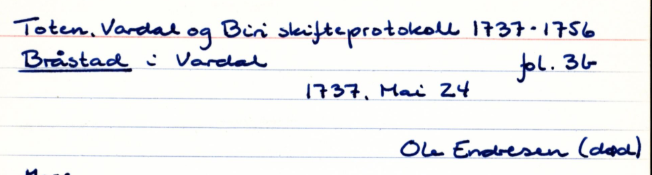 Toten, Vardal og Biri skifteprotokoll 1737-1756
Bråstad i Vardal fol. 3b
1737. Mai 24
Ole Endresen (død)